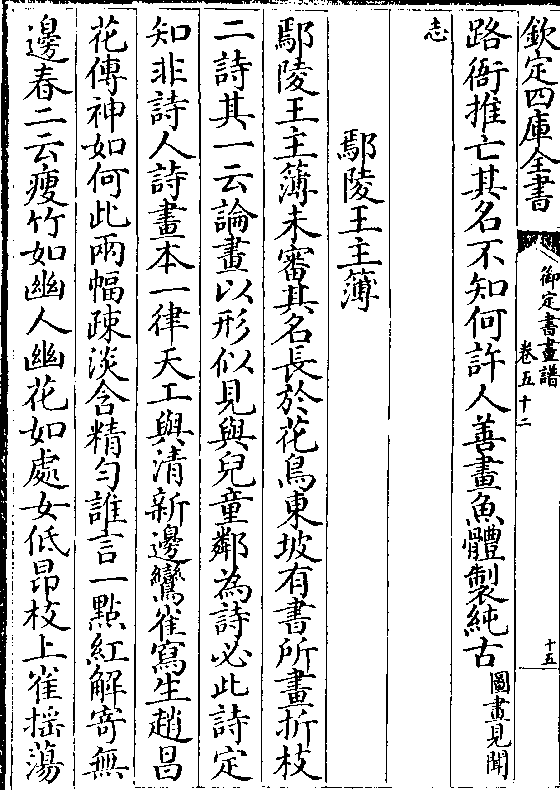 欽定四庫全書
御定書畫譜
卷五十二
十五
路衙推亡其名不知何許人善畫魚體製純古圖畫見聞
志
鄢陵王主簿
鄢陵王主簿未審其名長於花鳥東坡有書所畫折枝
二詩其一云論畫以形似見與兒童鄰為詩必此詩定
知非詩人詩畫本一律天工與清新邊鸞雀寫生趙昌
花傳神如何此兩幅疎淡含精勻誰言一點紅解寄無
邊春二云瘦竹如幽人幽花如處女低昂枝上雀揺蕩